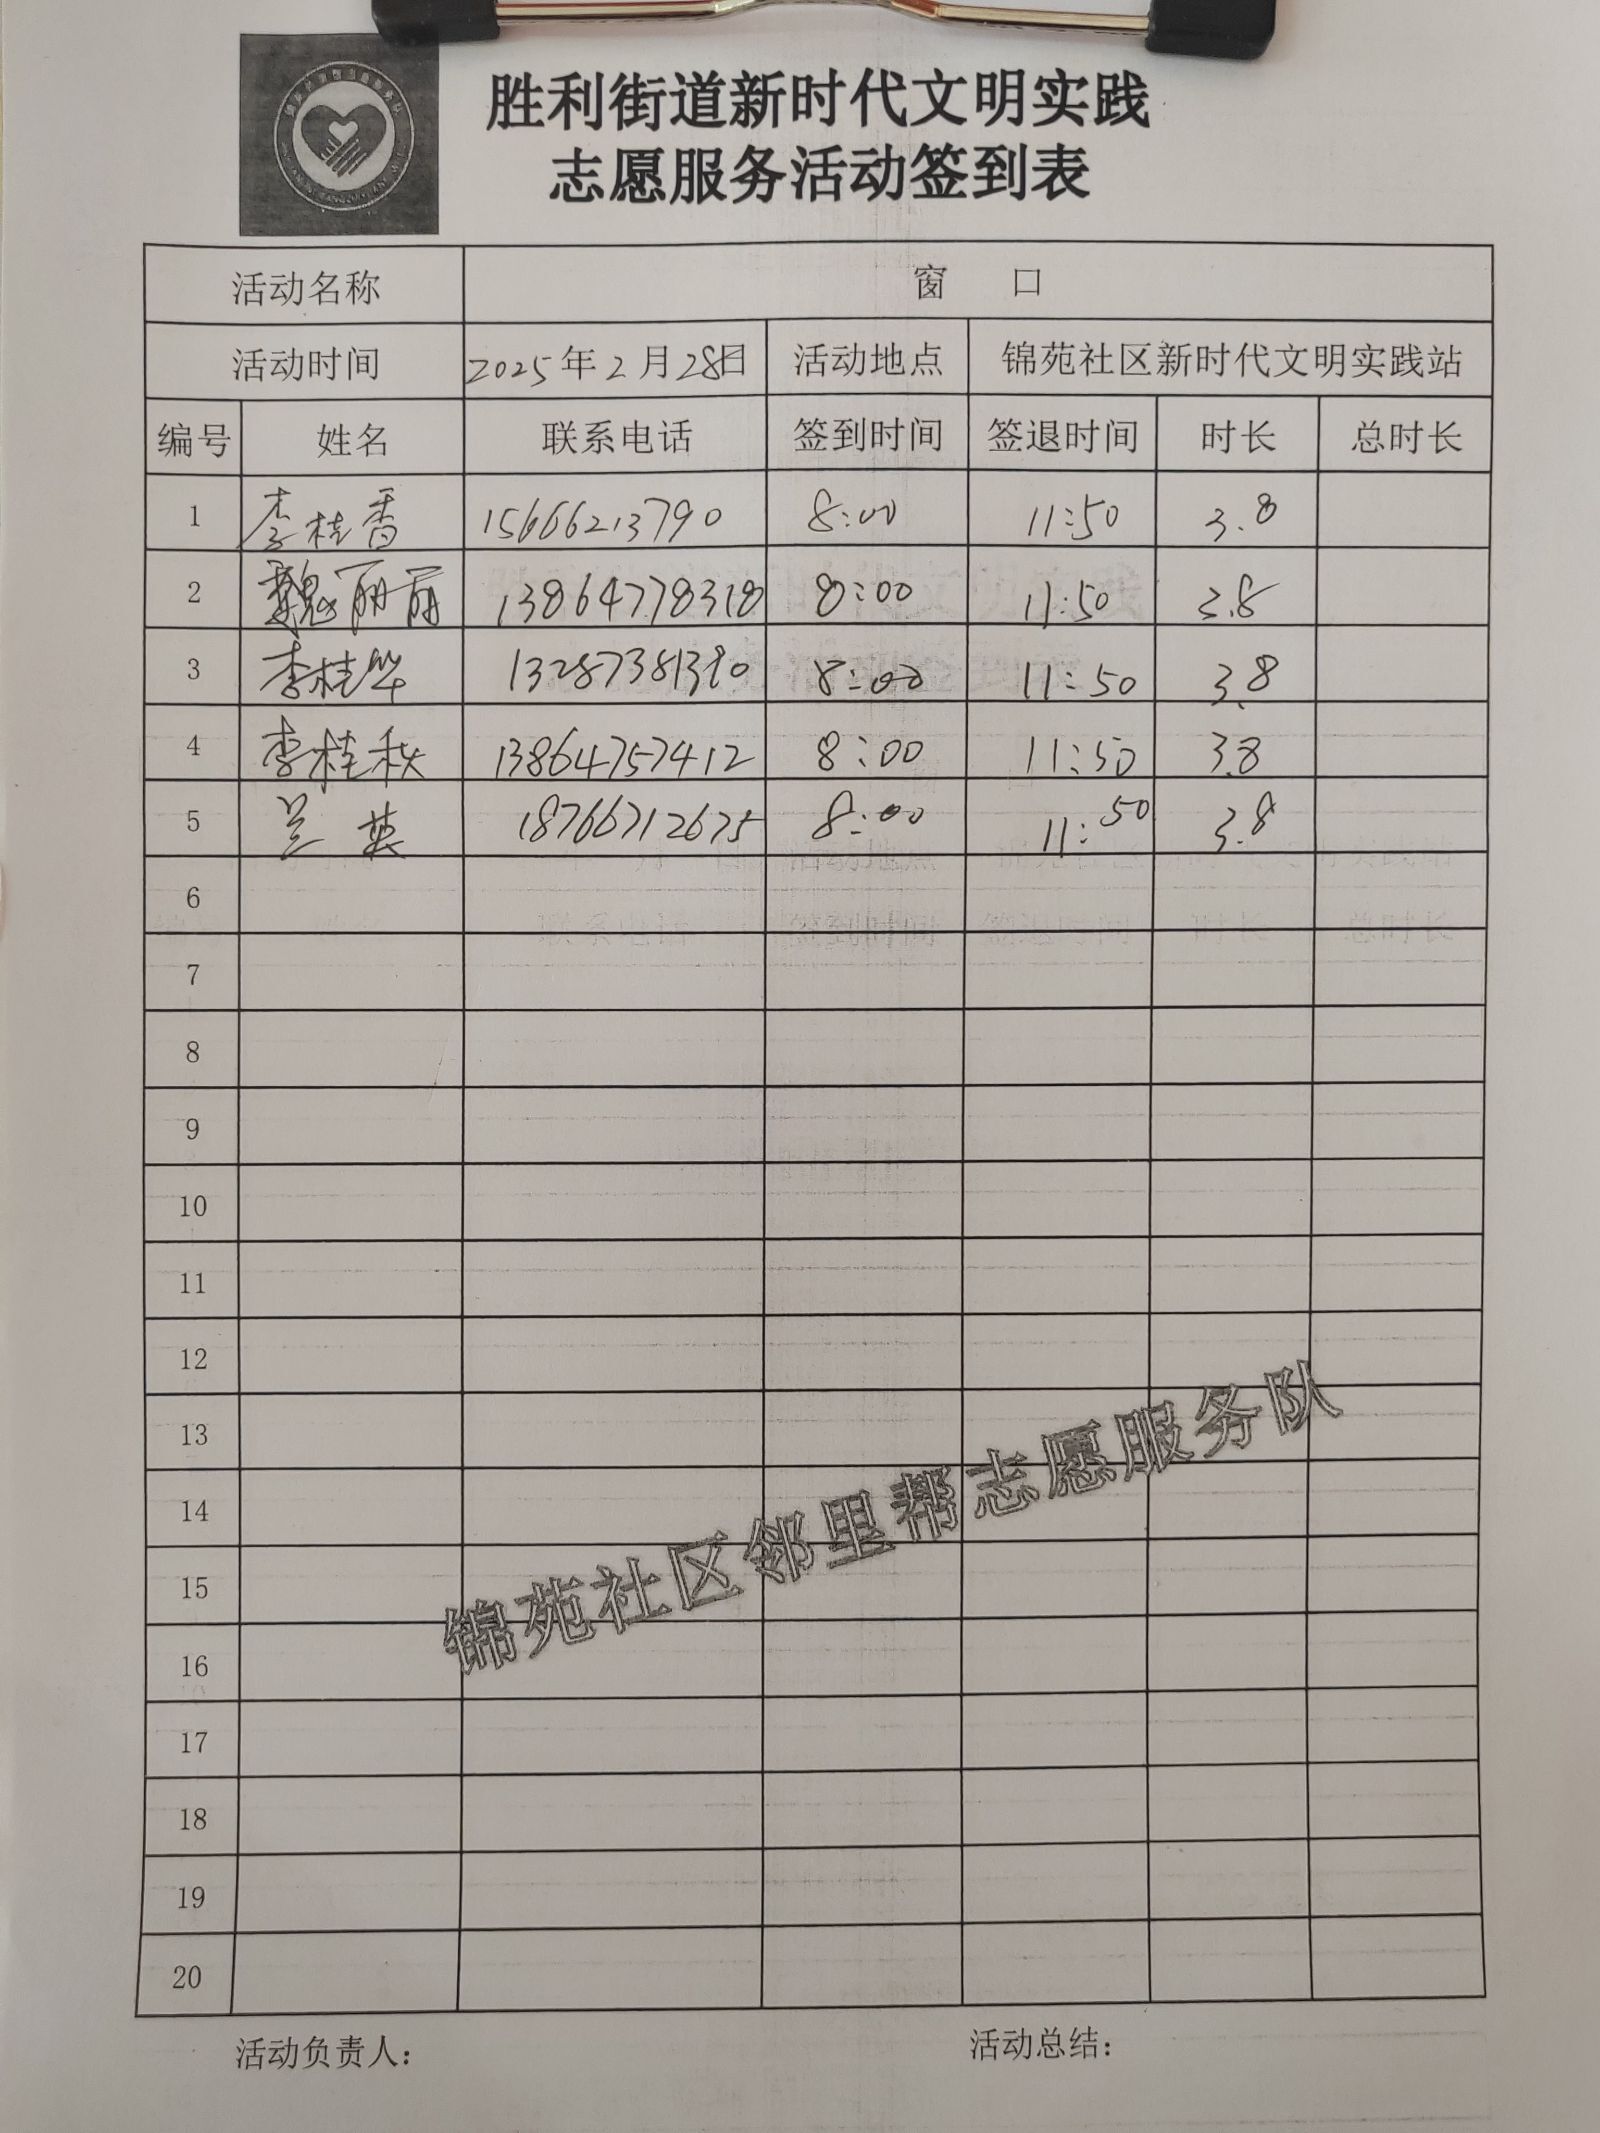 胜利街道新时代文明实践
志愿服务活动签到表
活动名称 窗 口
活动时间 2025年2月28日 活动地点 锦苑社区新时代文明实践站
编号 姓名 联系电话 签到时间 签退时间 时长 总时长
1 李桂香 15666213790 8:00 11:50 3.8
2 魏丽丽 13864778318 8:00 11:50 3.8
3 李桂华 13287381390 8:00 11:50 3.8
4 李桂秋 13864757412 8:00 11:50 3.8
5 兰英 18766712675 8:00 11:50 3.8
6
7
8
9
10
11
12
13
14
15
16
17
18
19
20
锦苑社区邻里帮志愿服务队
活动负责人: 活动总结: